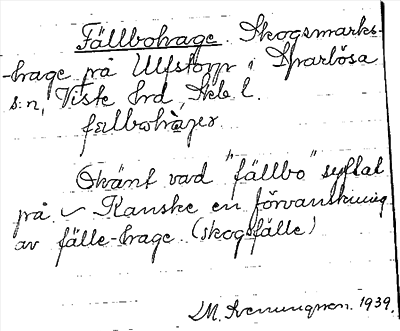 Fällbohage. Skogsmarks-
-hage på Ulfstorp i Sparlösa
s:n, Viste hd, Skb l.
fælbohàger
Okänt vad "fällbo" syftat
på. – Kanske en förvanskning
av fälle-hage (skogsfälle)
M. 1939.